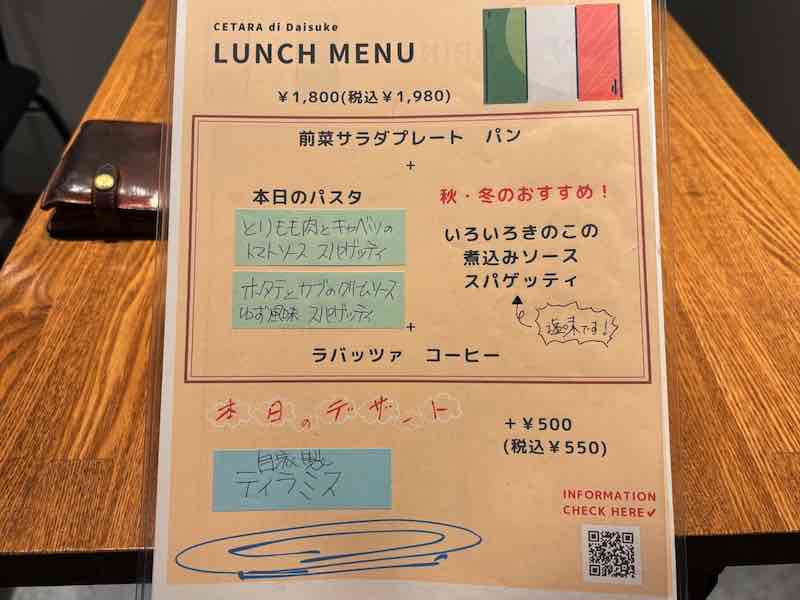 CETARA di Daisuke
LUNCH MENU
¥1,800(税込¥1,980)
前菜サラダプレート　パン
+
本日のパスタ
とりもも肉とキャベツの
トマトソース スパゲッティ
ホタテとカブのクリームソース
ゆず風味 スパゲッティ
秋・冬のおすすめ！
いろいろきのこの
煮込みソース
スパゲッティ
塩味です！
+
ラバッツァ　コーヒー
本日のデザート
自家製
ティラミス
+¥500
(税込¥550)
INFORMATION
CHECK HERE✓